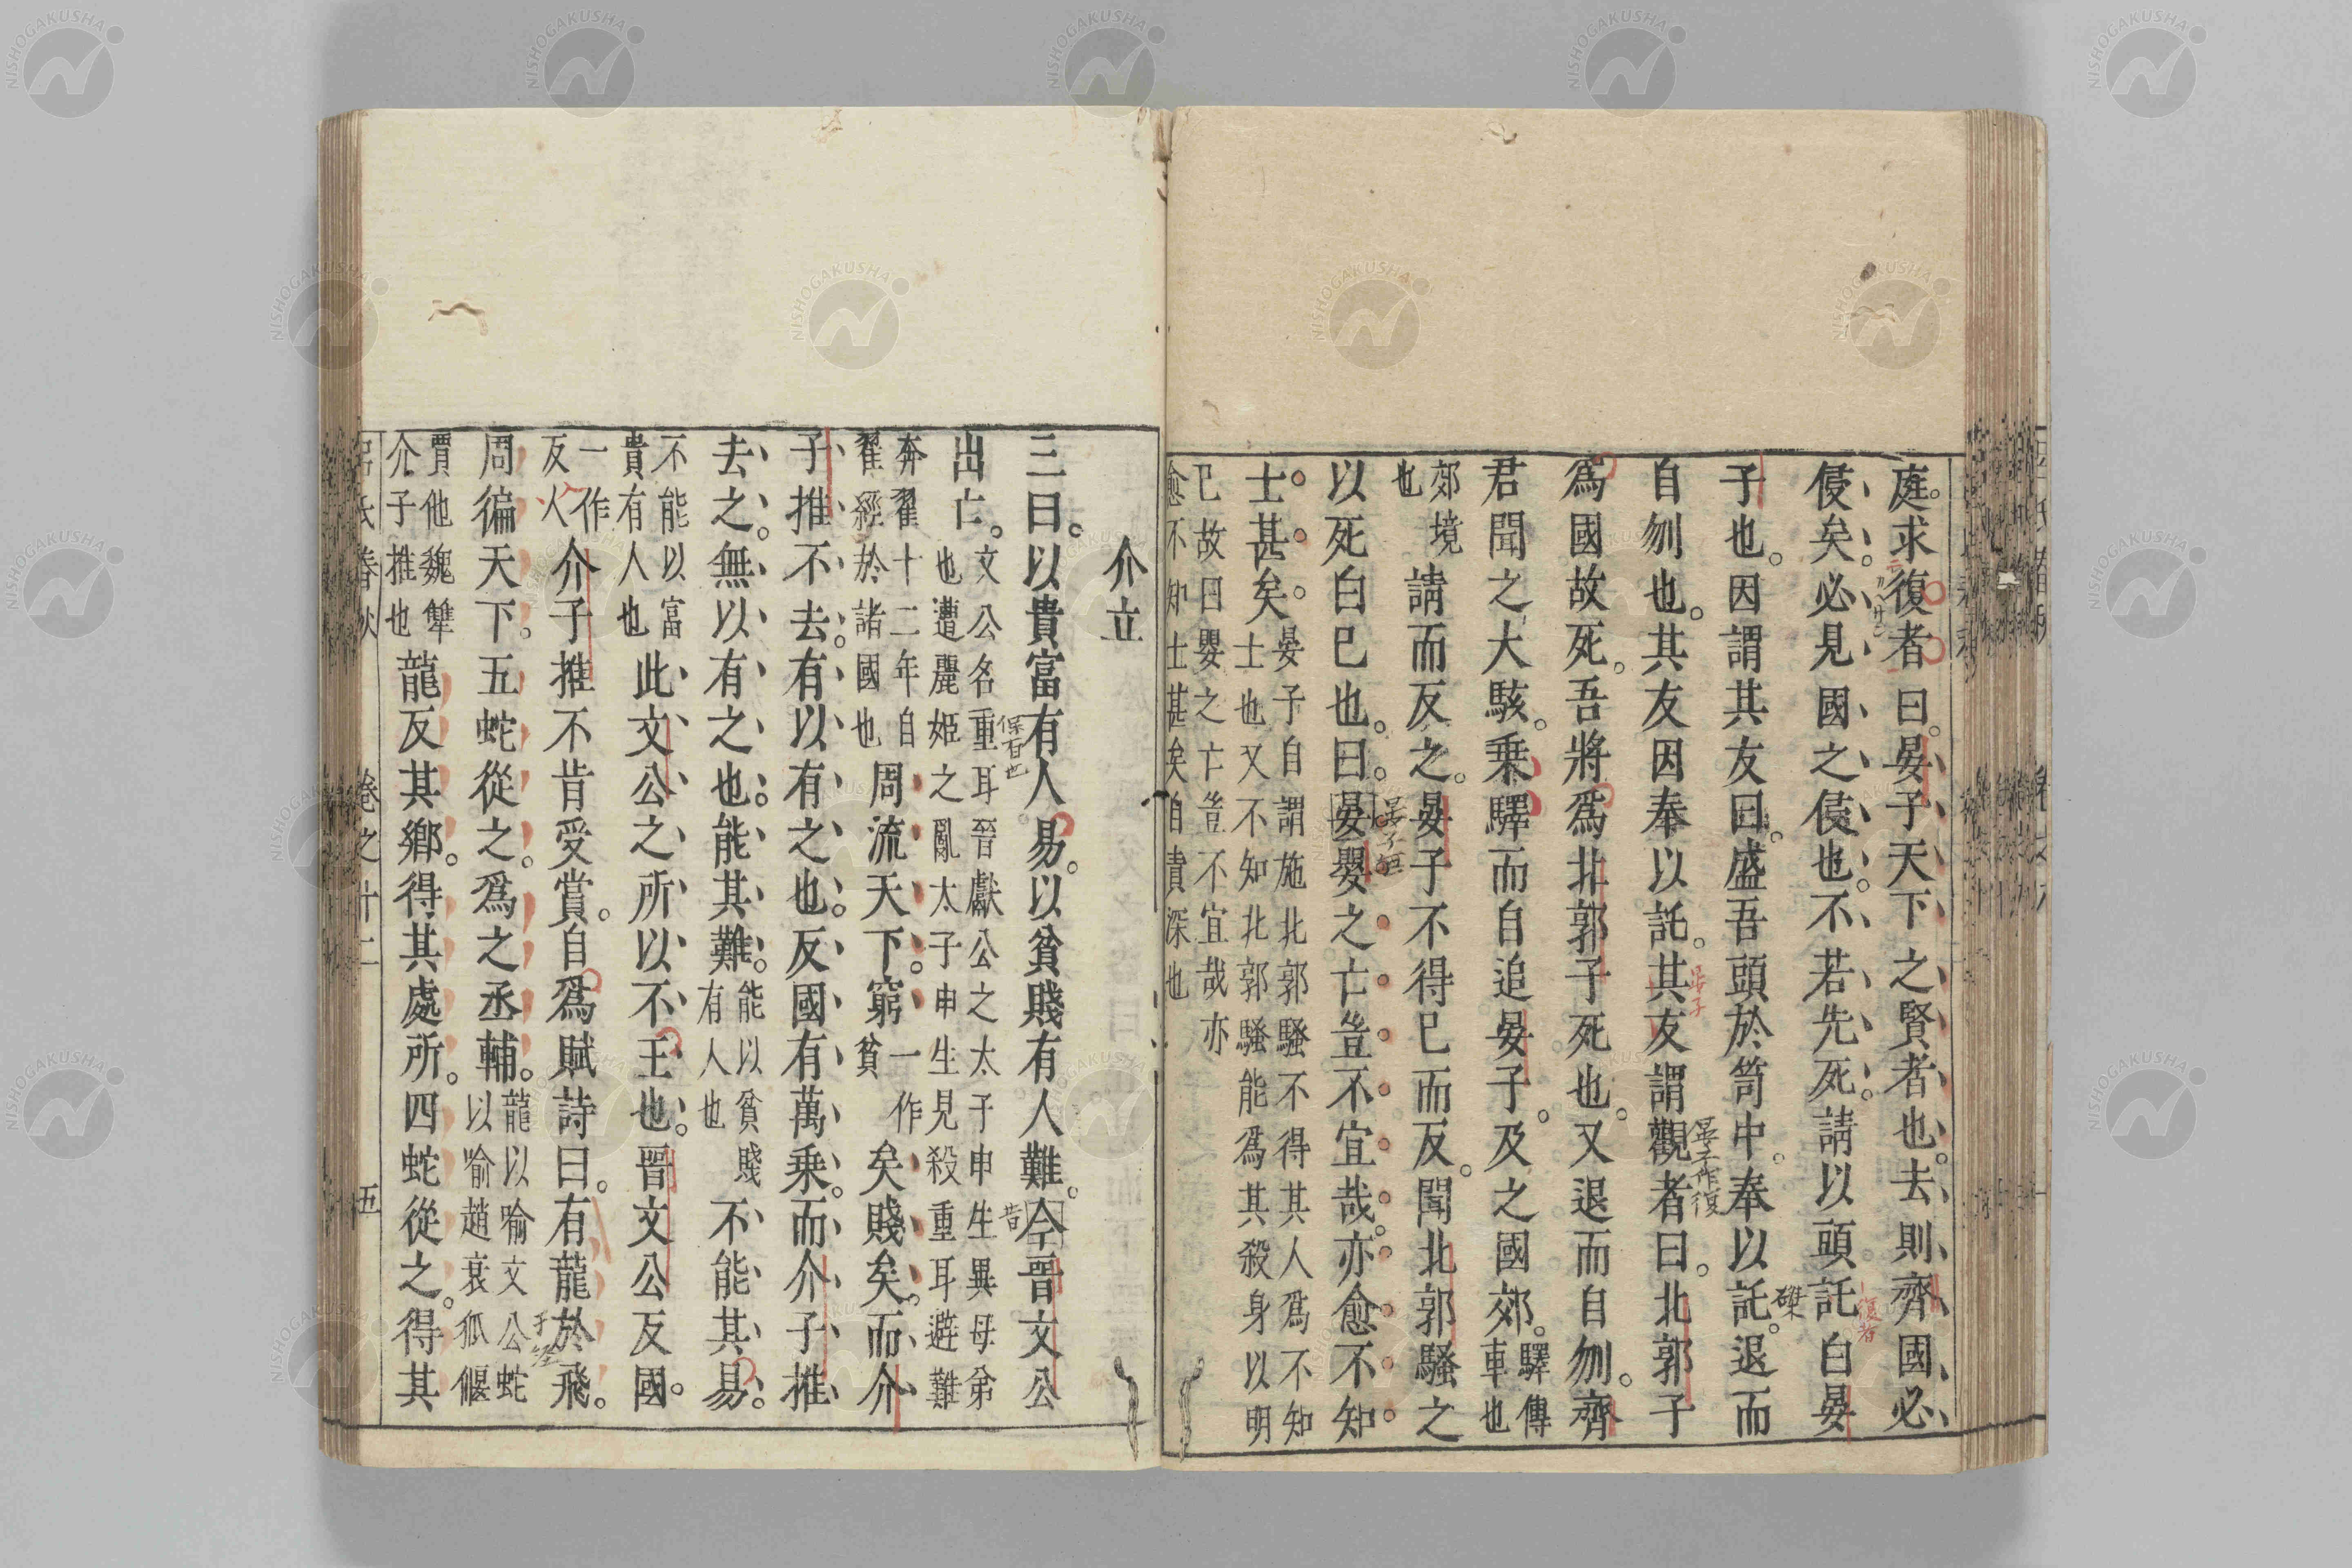 庭。求復者曰。晏子天下之賢者也。去則齊國必
侵矣。必見國之侵也。不若先死。請以頭託白晏
子也。因謂其友曰。盛吾頭於笥中。奉以託。退而
自刎也。其友因奉以託。其友謂觀者曰。北郭子
爲國故死。吾將爲北郭子死也。又退而自刎。齊
君聞之大駭。乗驛而自追晏子。及之國郊。驛傳車也
郊境也請而反之。晏子不得已而反。聞北郭騷之
以死白已也。曰。晏嬰之亡豈不宜哉。亦愈不知
士甚矣。晏子自謂施北郭騷不得其人爲不知士也又不知北郭騷能爲其殺身以明
已故曰嬰之亡豈不宜哉亦愈不知士甚矣自責深也
介立
三曰。以貴富有人易。以貧賤有人難。今晉文公
出亡。文公名重耳晉獻公之太子申生異母弟也遭麗姬之亂太子申生見殺重耳避難
奔翟十二年自翟經於諸國也周流天下。窮一作貧矣賤矣。而介
子推不去。有以有之也。反國有萬乗。而介子推
去之。無以有之也。能其難。能以貧賤有人也不能其易。
不能以富貴有人也此文公之所以不王也。晉文公反國。
一作反人介子推不肯受賞。自爲賦詩曰。有龍於飛。
周徧天下。五蛇從之。爲之丞輔。龍以喻文公蛇以喻趙衰狐偃
賈他魏犨介子推也龍反其鄉。得其處所。四蛇從之。得其
呂氏春秋 卷之十二 五